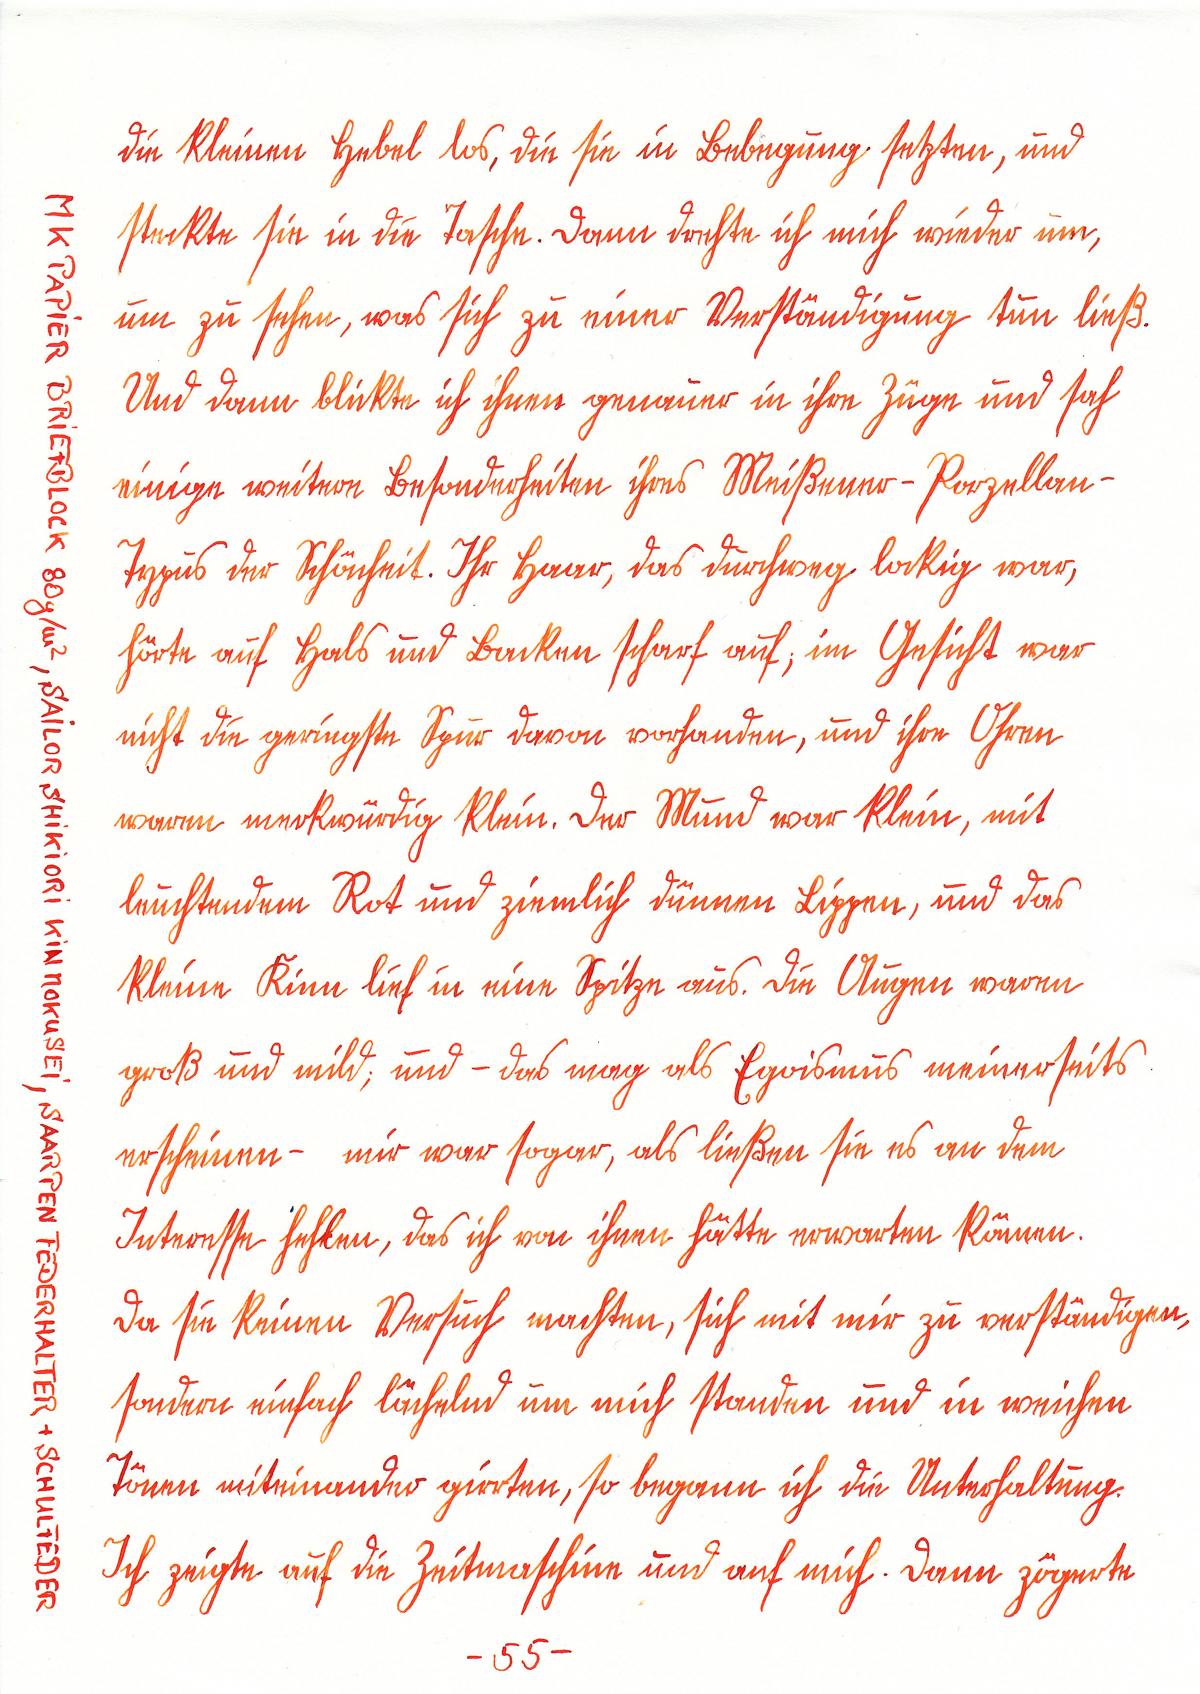 die kleinen Hebel los, die sie in Bebegung setzten, und
steckte sie in die Tasche. Dann drehte ich mich wieder um,
um zu sehen, was sich zu einer Verständigung tun ließ.
Und dann blickte ich ihnen genauer in ihre Züge und sah
einige weitere Besonderheiten ihres Meißener-Porzellan-
Typus der Schönheit. Ihr Haar, das durchweg lockig war,
hörte auf Hals und Backen scharf auf; im Gesicht war
nicht die geringste Spur davon vorhanden, und ihre Ohren
waren merkwürdig klein. Der Mund war klein, mit
leuchtendem Rot und ziemlich dünnen Lippen, und das
kleine Kinn lief in eine Spitze aus. Die Augen waren
groß und mild; und - das mag als Egoismus meinerseits
erscheinen - mir war sogar, als ließen sie es an dem
Interesse fehlen, das ich von ihnen hätte erwarten können.
Da sie keinen Versuch machten, sich mit mir zu verständigen,
sondern einfach lächelnd um mich standen und in weichen
Tönen miteinander girrten, so begann ich die Unterhaltung.
Ich zeigte auf die Zeitmaschine und auf mich. Dann zögerte
-55-
MK PAPIER BRIEFBLOCK 80g/m², SAILOR SHIKIORI KINMOKUSEI, SAARPEN FEDERHALTER + SCHULFEDER